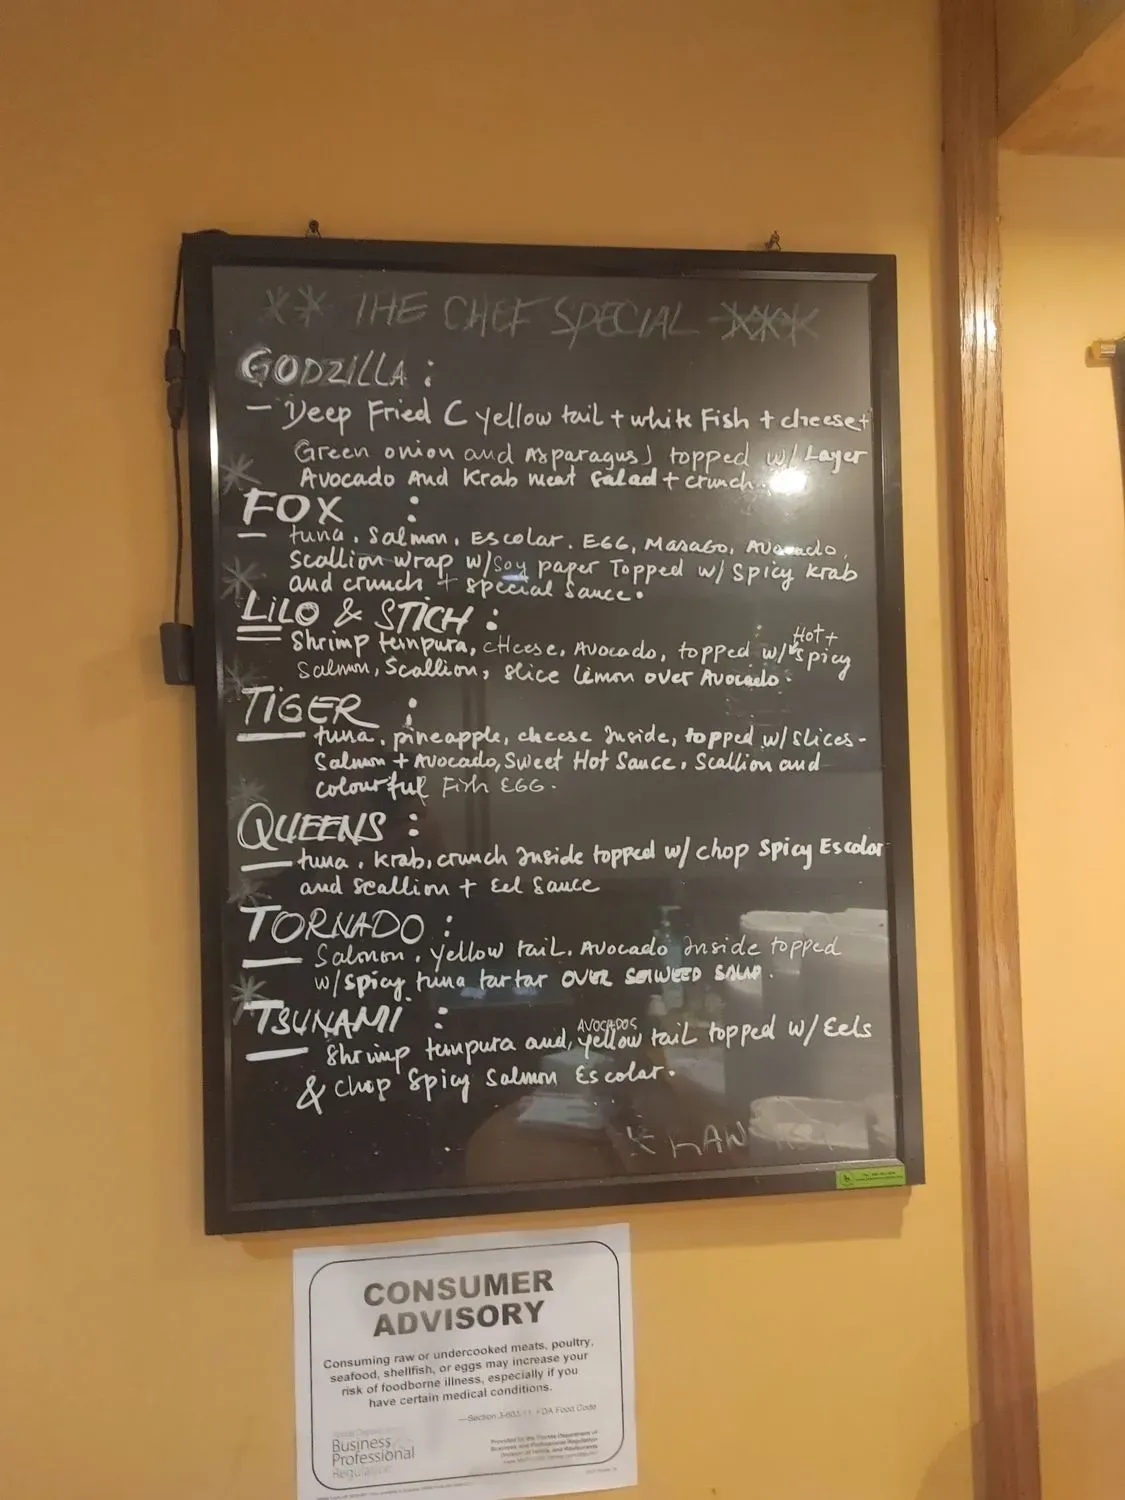 ** THE CHEF SPECIAL ***
GODZILLA :
- Deep Fried ( yellow tail + white Fish + cheese +
Green onion and Asparagus) topped w/ Layer
Avocado And Krab meat Salad + crunch.
FOX :
- tuna, Salmon, Escolar, EGG, Masago, Avocado,
Scallion wrap w/ Soy paper Topped w/ Spicy Krab
and crunch + special Sauce.
LiLO & STICH :
Hot +
Shrimp tempura, cHeese, Avocado, topped w/ spicy
Salmon, Scallion, slice lemon over Avocado.
TIGER :
tuna, pineapple, cheese Inside, topped w/ slices-
Salmon + Avocado, Sweet Hot Sauce, Scallion and
colourful Fish EGG.
QUEENS :
tuna, Krab, crunch Inside topped w/ chop Spicy Escolar
and scallion + Eel Sauce
TORNADO :
Salmon, yellow tail, Avocado Inside topped
w/ spicy tuna tartar OVER SEAWEED SALAD.
TSUNAMI :
AVOCADOS
Shrimp tempura and, yellow tail topped w/ Eels
& chop Spicy Salmon Escolar.
CONSUMER
ADVISORY
Consuming raw or undercooked meats, poultry,
seafood, shellfish, or eggs may increase your
risk of foodborne illness, especially if you
have certain medical conditions.
—Section 3-603.11, FDA Food Code
Business
Professional
Regulation
Provided by the Florida Department of
Business and Professional Regulation
Division of Hotels and Restaurants